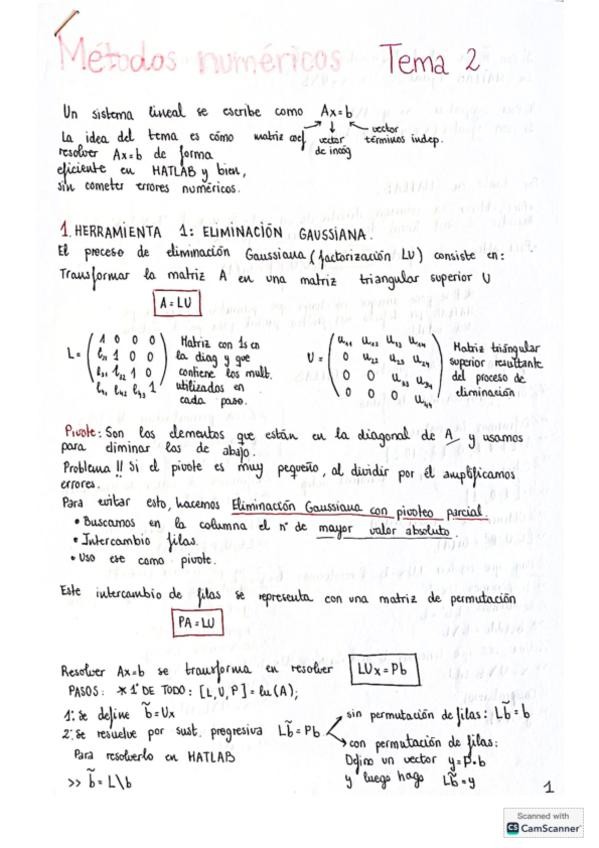 Métodos numéricos Tema 2
Un sistema lineal se escribe como Ax=b
La idea del tema es cómo matriz coef vector de incóg vector términos indep.
resolver Ax=b de forma
eficiente en MATLAB y bien,
sin cometer errores numéricos.
1. HERRAMIENTA 1: ELIMINACIÓN GAUSSIANA.
El proceso de eliminación Gaussiana (factorización LU) consiste en:
Transformar la matriz A en una matriz triangular superior U
A=LU
L = ( 1 0 0 0 Matriz con 1s en U = ( u₁₁ u₁₂ u₁₃ u₁₄ Matriz triángular
l₂₁ 1 0 0 la diag y que 0 u₂₂ u₂₃ u₂₄ superior resultante
l₃₁ l₃₂ 1 0 contiene los mult. 0 0 u₃₃ u₃₄ del proceso de
l₄₁ l₄₂ l₄₃ 1 ) utilizados en 0 0 0 u₄₄ ) eliminación
cada paso.
Pivote: Son los elementos que están en la diagonal de A y usamos
para eliminar los de abajo.
Problema!! Si el pivote es muy pequeño, al dividir por él amplificamos
errores.
Para evitar esto, hacemos Eliminación Gaussiana con pivoteo parcial.
• Buscamos en la columna el nº de mayor valor absoluto.
• Intercambio filas.
• Uso ese como pivote.
Este intercambio de filas se representa con una matriz de permutación
PA=LU
Resolver Ax=b se transforma en resolver LUx=Pb
PASOS: * 1º DE TODO: [L,U,P]=lu(A);
1: Se define b̃=Ux
2: Se resuelve por sust. progresiva Lb̃=Pb
sin permutación de filas: Lb̃=b
con permutación de filas:
Defino un vector y=P·b
y luego hago Lb̃=y
Para resolverlo en MATLAB
>> b̃=L\b
1
Scanned with
CS CamScanner